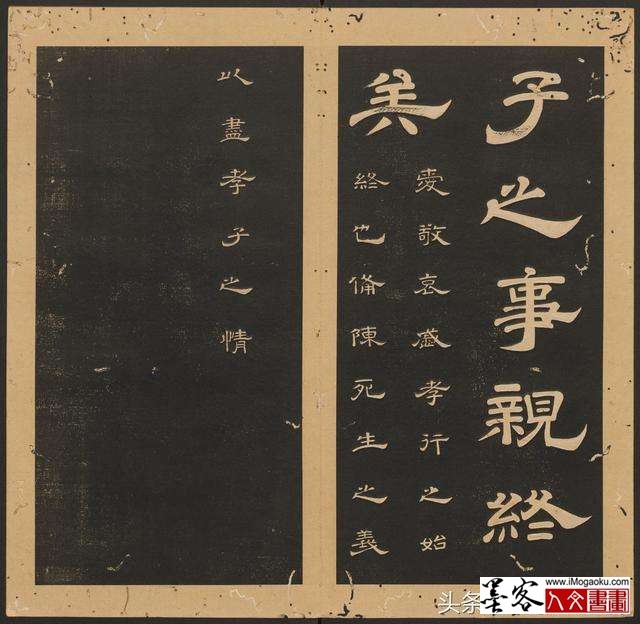 子之事親終
矣
愛敬哀慼孝行之始
終也備陳死生之義
以盡孝子之情
头条
墨客
www.iMogaoku.com
人文書畫